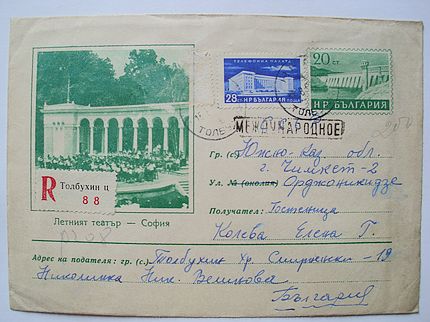 ТЕЛЕФОННА ПАЛАТА
28 СТ НР БЪЛГАРИЯ ПОЩА
20 СТ.
НР БЪЛГАРИЯ
МЕЖДУНАРОДНОЕ
Гр. (с) Южно-Каз. обл.
г. Чимкет-2
Ул. № (околия) Орджоникидзе
Получател: Гостеница
Колева Елена Г.
R Толбухин ц
88
Летният театър — София
Адрес на подателя: гр. (с.) Толбухин Хр. Смирненски-19
Николинка Ник. Великова
България